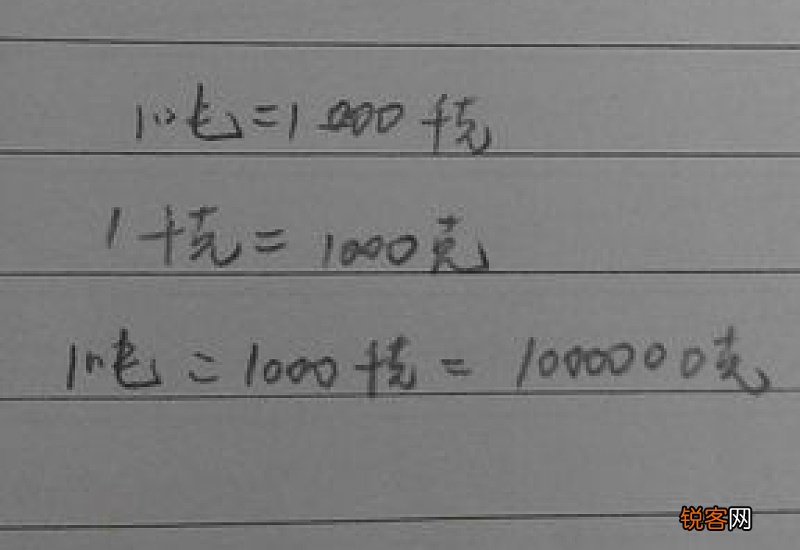 1吨=1000千克
1千克=1000克
1吨=1000千克=1000000克
锐客网